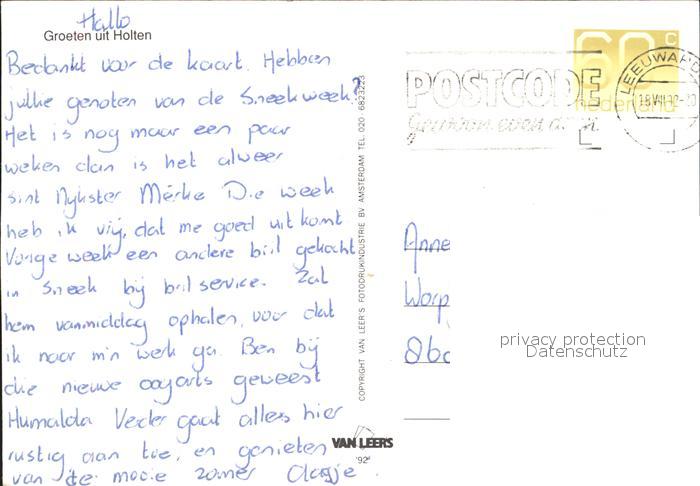 Hallo
Groeten uit Holten
Bedankt voor de kaart. Hebben
jullie genoten van de Sneekweek?
Het is nog maar een paar
weken dan is het alweer
sint Nykster Mèrke Die week
heb ik vrij, dat me goed uit komt
Vorige week een andere bril gekocht
in Sneek bij brilservice. Zal
hem vanmiddag ophalen, voor dat
ik naar m'n werk ga. Ben bij
die nieuwe oogarts geweest
Humalda Verder gaat alles hier
rustig aan toe, en genieten
van de mooie zomer
COPYRIGHT VAN LEER'S FOTODRUKINDUSTRIE BV AMSTERDAM TEL. 020 - 6823223
VAN LEERS
'92
POSTCODE
60 c
nederland
LEEUWARD
Anne
privacy protection
Datenschutz